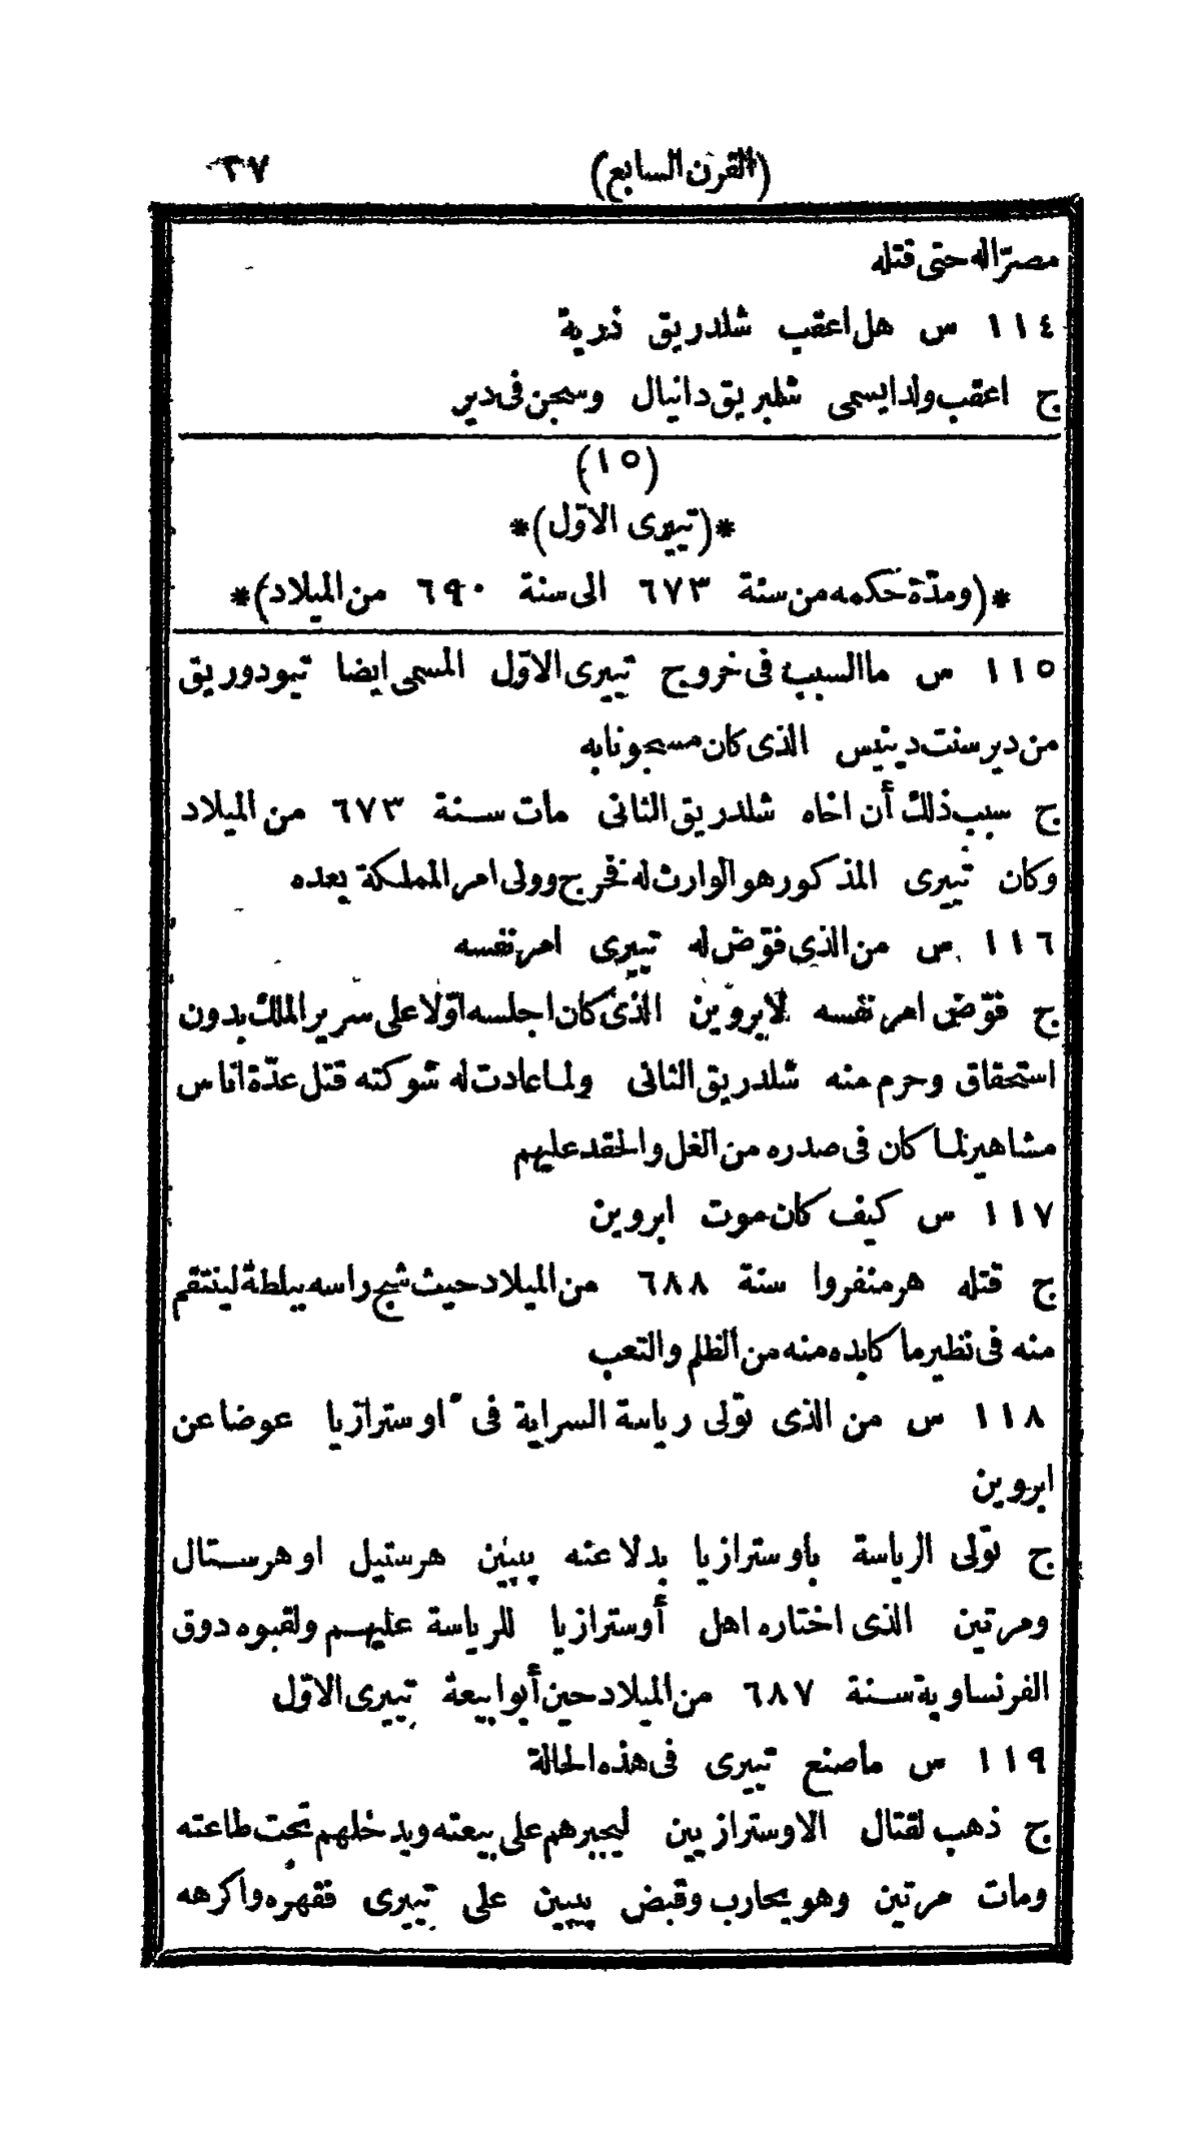 (القرن السابع) ٣٧
مصرّا له حتى قتله
١١٤ س هل اعقب شلدريق ذرية
ج اعقب ولدا يسمى شلبريق دانيال وسجن فى دير
(١٥)
*(تييرى الاوّل)*
*(ومدّة حكمه من سنة ٦٧٣ الى سنة ٦٩٠ من الميلاد)*
١١٥ س ما السبب فى خروج تييرى الاوّل المسمى ايضا تيودوريق
من دير سنت دينيس الذى كان مسجونا به
ج سبب ذلك أن اخاه شلدريق الثانى مات سنة ٦٧٣ من الميلاد
وكان تييرى المذكور هو الوارث له فخرج وولى امر المملكة بعده
١١٦ س من الذى فوّض له تييرى امر نفسه
ج فوّض امر نفسه لابروين الذى كان اجلسه اوّلا على سرير الملك بدون
استحقاق وحرم منه شلدريق الثانى ولما عادت له شوكته قتل عدّة اناس
مشاهير لما كان فى صدره من الغل والحقد عليهم
١١٧ س كيف كان موت ابروين
ج قتله هرمنفروا سنة ٦٨٨ من الميلاد حيث شج راسه ببلطة لينتقم
منه فى نظير ما كابده منه من الظلم والتعب
١١٨ س من الذى تولى رياسة السراية فى اوسترازيا عوضا عن
ابروين
ج تولى الرياسة باوسترازيا بدلا عنه پيپين هرستيل او هرستال
ومرتين الذى اختاره اهل أوسترازيا للرياسة عليهم ولقبوه دوق
الفرنساوية سنة ٦٨٧ من الميلاد حين أبوا بيعة تييرى الاوّل
١١٩ س ما صنع تييرى فى هذه الحالة
ج ذهب لقتال الاوسترازيين ليجبرهم على بيعته ويدخلهم تحت طاعته
ومات مرتين وهو يحارب وقبض پيپين على تييرى فقهره واكرهه